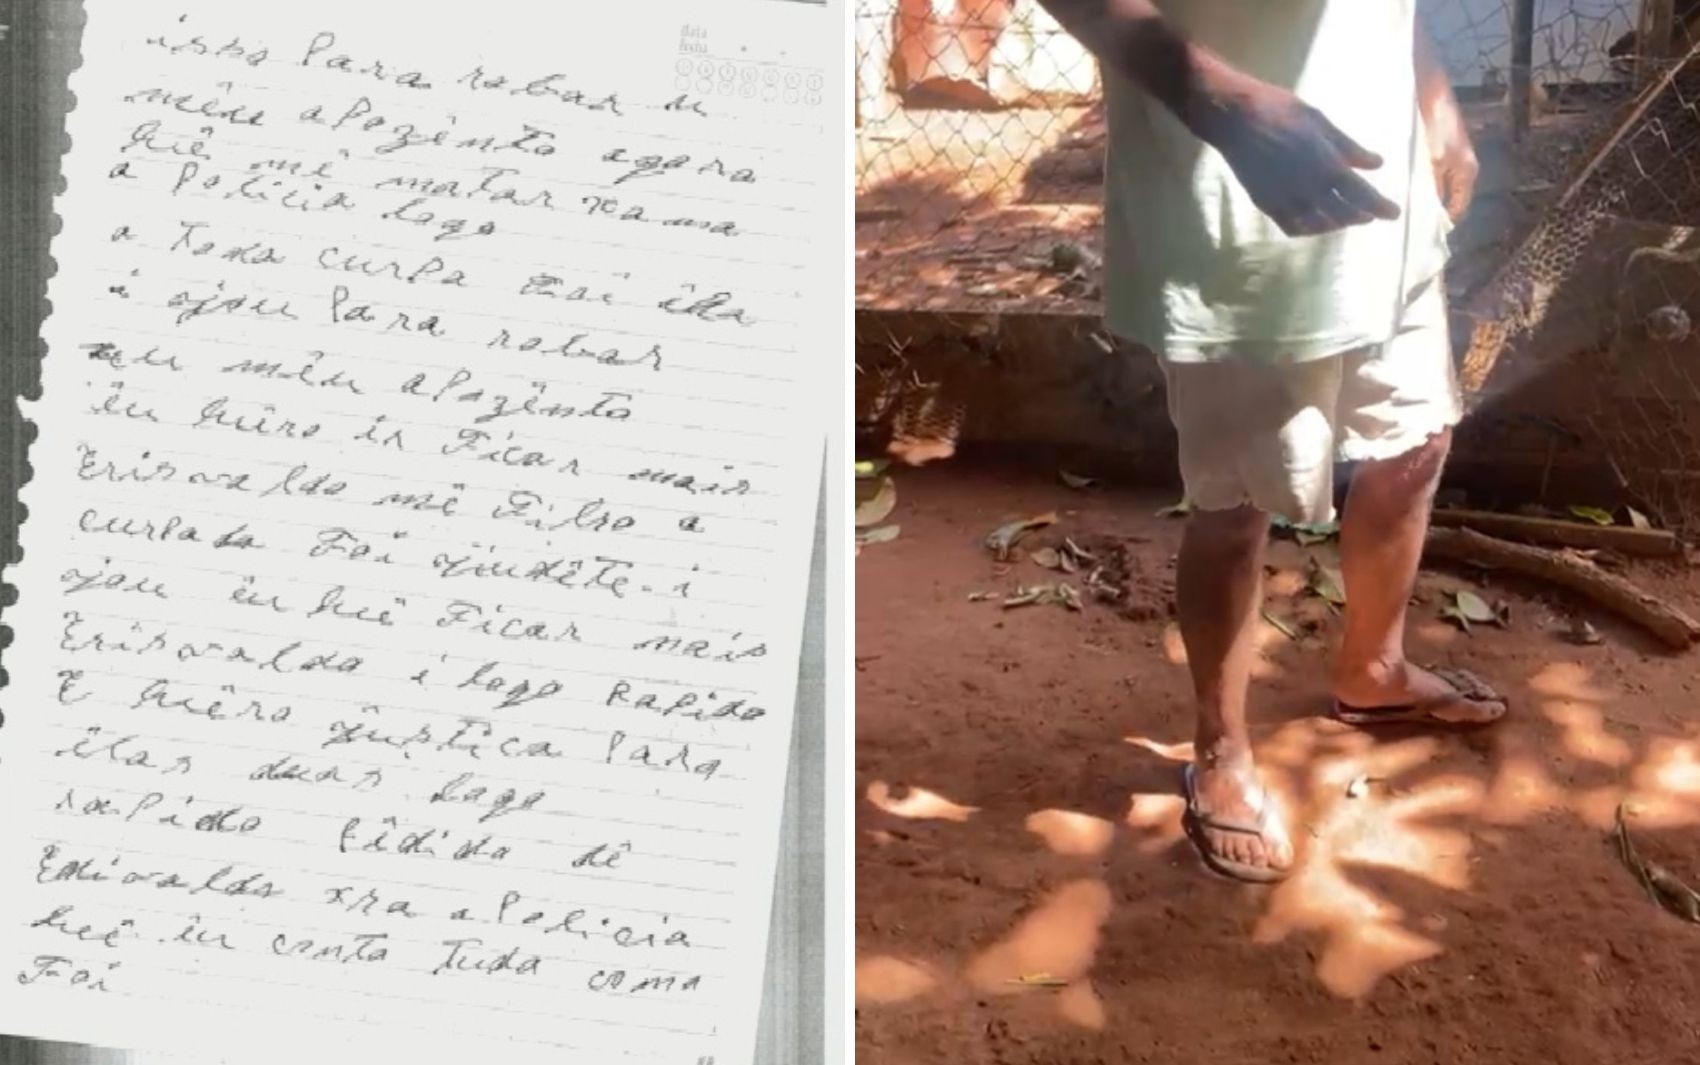 data
fecha
isso Para robar u
mêu aPozênto agora
hê mê matar xama
a Policia logo
a Toda curPa Foi êla
i ajou Para robar
u mêu aPozênto
êu huêro ir Ficar mais
Erisvaldo mê Filho a
curPada Foi Judête i
ajou êu huê Ficar mais
Erisvaldo i logo RaPido
E huêro justica Para
êlas duas logo
raPido Pêdido dê
Edivaldo xra a Policia
huê êu conto Tudo como
Foi